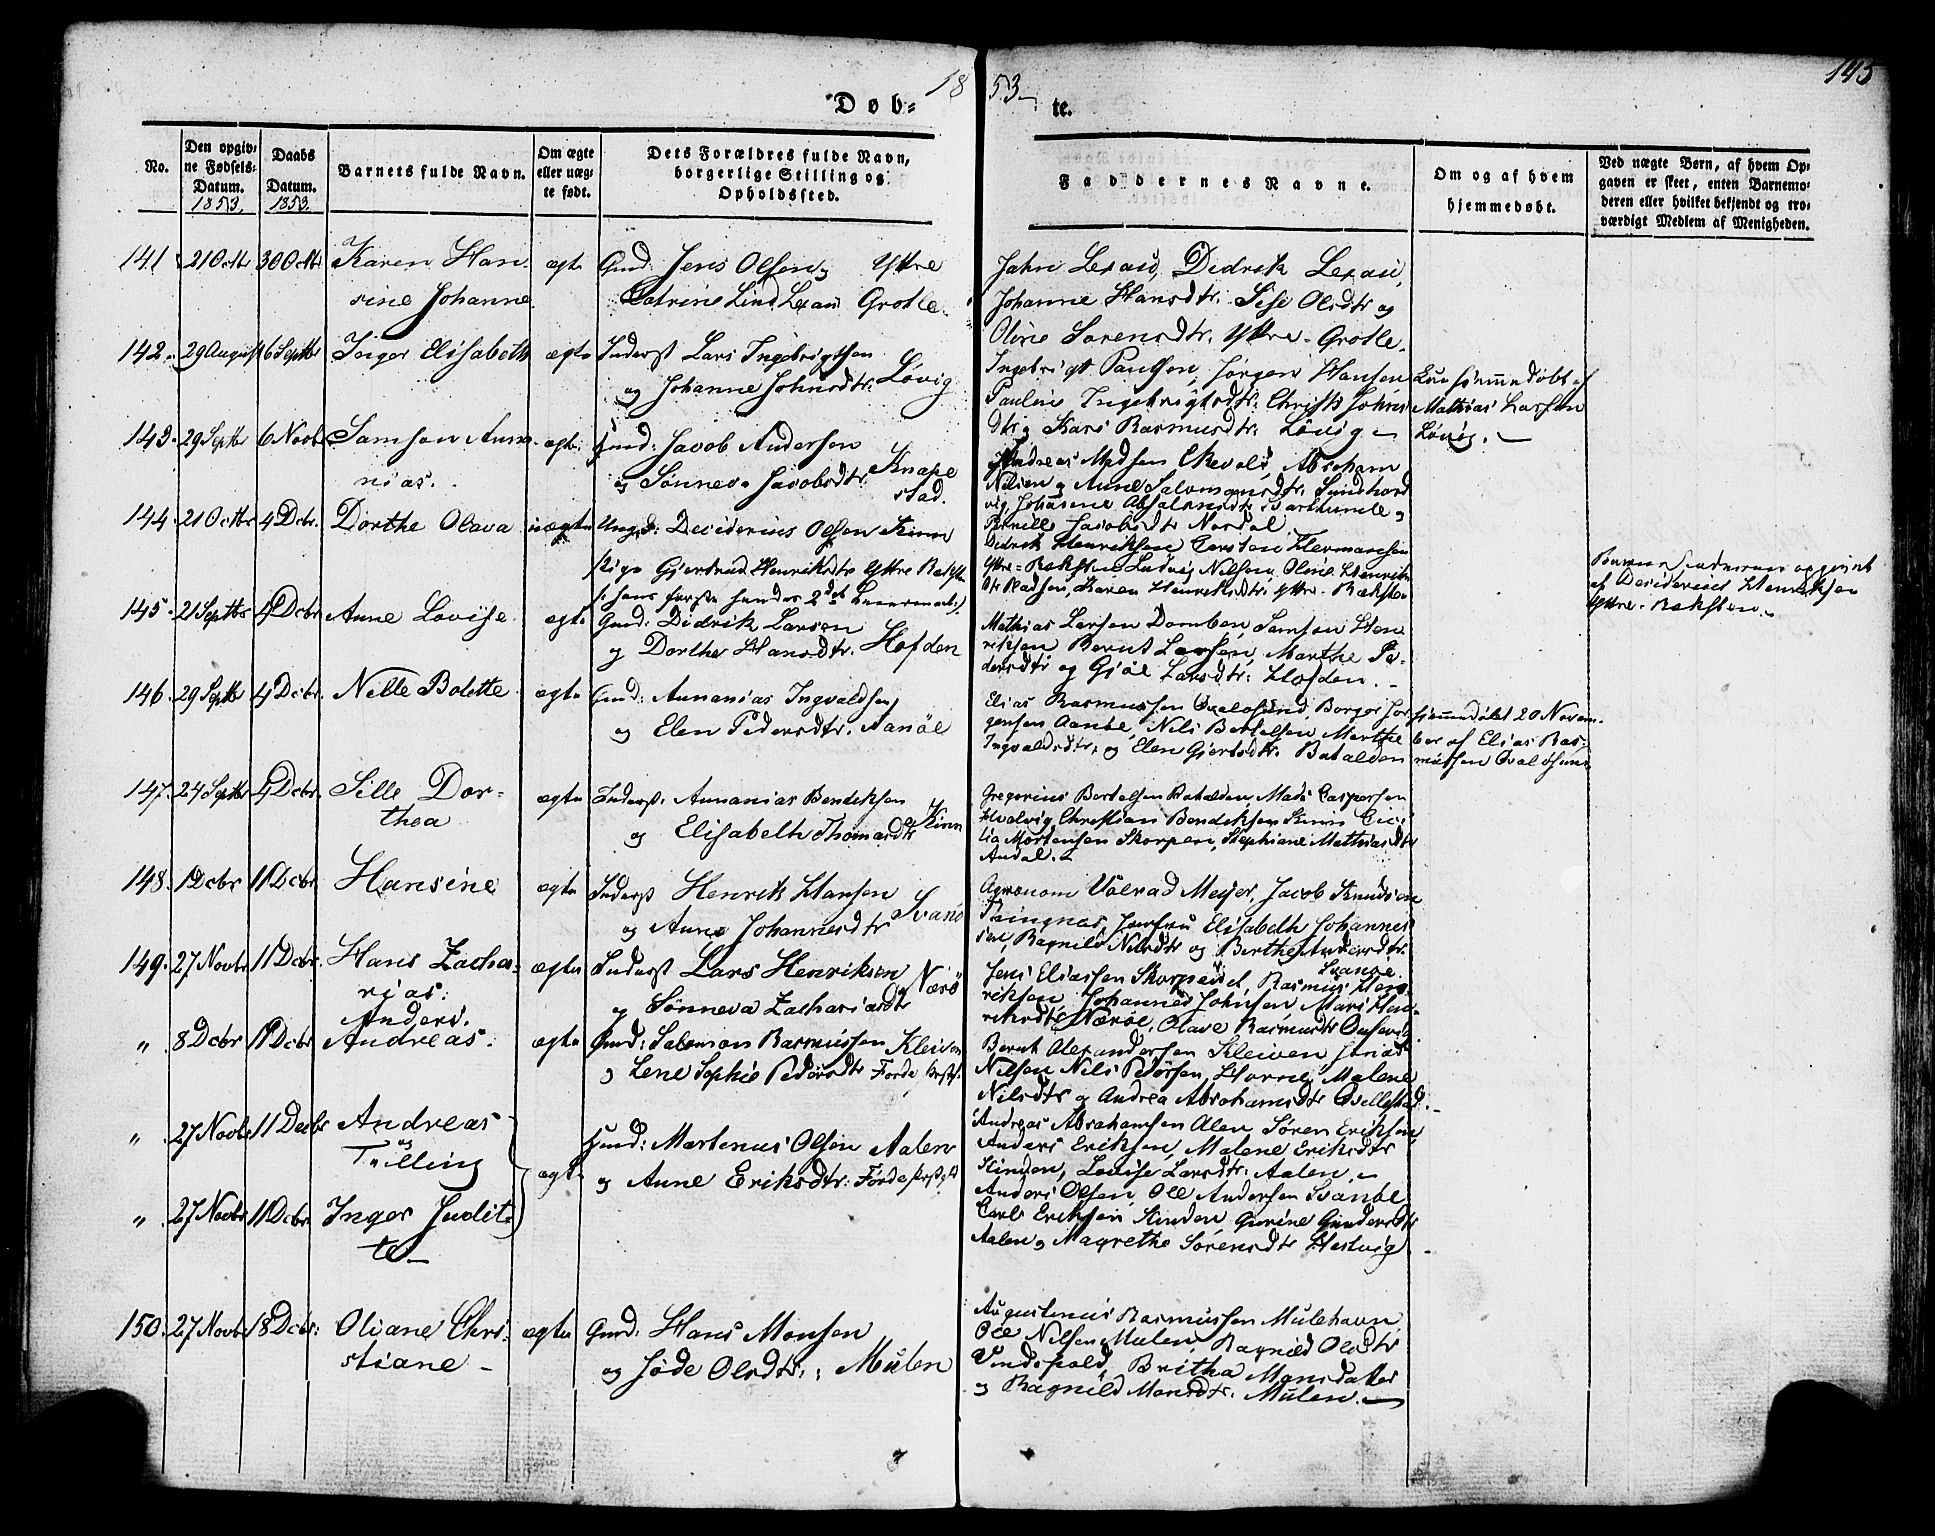 1853
145
Døb-te.
No.
Den opgiv-
ne Fødsels-
Datum.
1853.
Daabs
Datum.
1853.
Barnets fulde Navn.
Om ægte
eller uæg-
te født.
Dets Forældres fulde Navn,
borgerlige Stilling og
Opholdssted.
Faddernes Navne.
Om og af hvem
hjemmedøbt.
Ved uægte Børn, af hvem Op-
gaven er skeet, enten Barnemo-
deren eller hvilket bekjendt og tro-
værdigt Medlem af Menigheden.
141 21 Octbr 30 Octbr Karen Han-
sine Johanne
ægte Gmd: Jens Olsen og Yttre
Catrine Lind Lexau Grotle.
John Lexau, Didrik Lexau,
Johanne Hansdtr. Sise Olsdtr og
Oline Sørensdtr. Yttre-Grotle.
142. 29 August 6 Septbr Inger Elisabeth ægte Inderst Lars Ingebrigtsen
og Johanne Johnsdtr. Løvig
Ingebrigt Paulsen, Jørgen Hansen
Pauline Ingebrigtsdtr. Christi Johns
dtr og Kari Rasmusdtr. Løvig
hjemmedøbt af
Mathias Larsen
Løvig.
143. 29 Septbr 6 Novbr Samson Anna-
nias.
ægte Gmd: Jacob Andersen
og Sønneva Jacobsdtr Knape
stad.
Andreas Madsen Abraham
Nilsen og Anne Salomonsdtr.
Johanne Absalonsdtr og
Pernille Jacobsdtr Nordal
144 21 Octbr 4 Dcbr. Dorthe Olava uægte Ungk: Deciderius Olsen Kinn
Pige Gjertrud Henriksdtr Yttre Rekste
(: hans første hendes 2det Leiermaal :)
Didrik Henriksen Carsten Hermansen
Yttre-Reksten Ludvig Nilsen, Oline Henriks
dtr Karen Henriksdtr. Yttre-Reksten
Barnefaderen opgivet
af Desiderius Henriksen
Yttre-Reksten.
145. 21 Septbr 4 Dcbr Anne Lovise ægte Gmd: Didrik Larsen
og Dorthe Hansdtr. Hofden
Mathias Larsen Domben, Samson Hen
riksen Bernt Larsen, Marthe Pe-
dersdtr og Gjøe Larsdtr: Hofden.
146. 29 Septbr 4 Dcbr. Nille Bolette ægte Gmd: Annanias Ingvaldsen
og Elen Pedersdtr. Aanøe
Elias Rasmussen Qvaløsund, Borger Jør
gensen Aanøe, Nils Bertelsen Marthe
Ingvaldsdtr, og Elen Gjertsdtr. Batalden
hjemmedøbt 20 Novem-
ber af Elias Ras-
mussen Qvaløsund
147. 24 Septbr 4 Dcbr. Sille Dor-
thea
ægte Inderst: Annanias Bendiksen
og Elisabeth Thomasdtr Kinn
Gregorius Bertelsen Batalden, Mads Caspersen
Christian Bendiksen Kinn Ceci-
lia Mortensen Skorpen, Stephiane Mathiasdtr
Andal.
148. 1 Dcbr 11 Dcbr Hansine ægte Inderst Henrik Hansen
og Anne Johannesdtr Svanø
Agronom Volrad Meyer, Jacob Knudsen
Jomfru Elisabeth Johannes
sen, Ragnild Nilsdtr og Berthe Andersdtr.
Svanøe.
149. 27 Novbr 11 Dcbr. Hans Zacha-
rias:
ægte Inderst Lars Henriksen
og Sønneva Zachariasdtr Nærø
Jens Eliassen Skorpesund, Rasmus Hen-
riksen, Johannes Johnsen, Mari Hen-
riksdtr Nærøe, Olave Rasmusdtr
" 8 Dcbr 11 Dcbr Anders.
Andreas.
ægte Gmd: Salomon Rasmussen Kleiven
og Lene Sophie Pedersdtr Førde Prstg.
Bernt Alexandersen Kleiven Jonas
Nilsen Nils Pedersen, Horne, Malene
Nilsdtr og Andrea Abrahamsdtr Qvellestad.
" 27 Novbr 11 Decbr Andreas
og
Tvilling
ægte Gmd: Martenus Olsen Aalen
og Anne Eriksdtr: Førde Prstg
Andreas Abrahamsen Alen Søren Eriksen
Anders Eriksen, Malene Eriksdtr
Hinden, Lovise Larsdtr. Aalen.
" 27 Novbr 11 Dcbr. Inger Judit-
te
Anders Olsen, Ole Andersen Svanøe
Carl Eriksen Hinden, Gurine Gundersdtr
Aalen og Magrethe Sørensdtr Hestvig
150. 27 Novbr 18 Dcbr: Oliane Chri-
stiane
ægte Gmd: Hans Monsen
og Jøde Olsdtr.: Mulen
Augustinus Rasmussen Mulehavn,
Ole Nilsen Mulen, Ragnild Olsdtr
Vindspold, Britha Monsdatter
og Ragnild Monsdtr. Mulen.